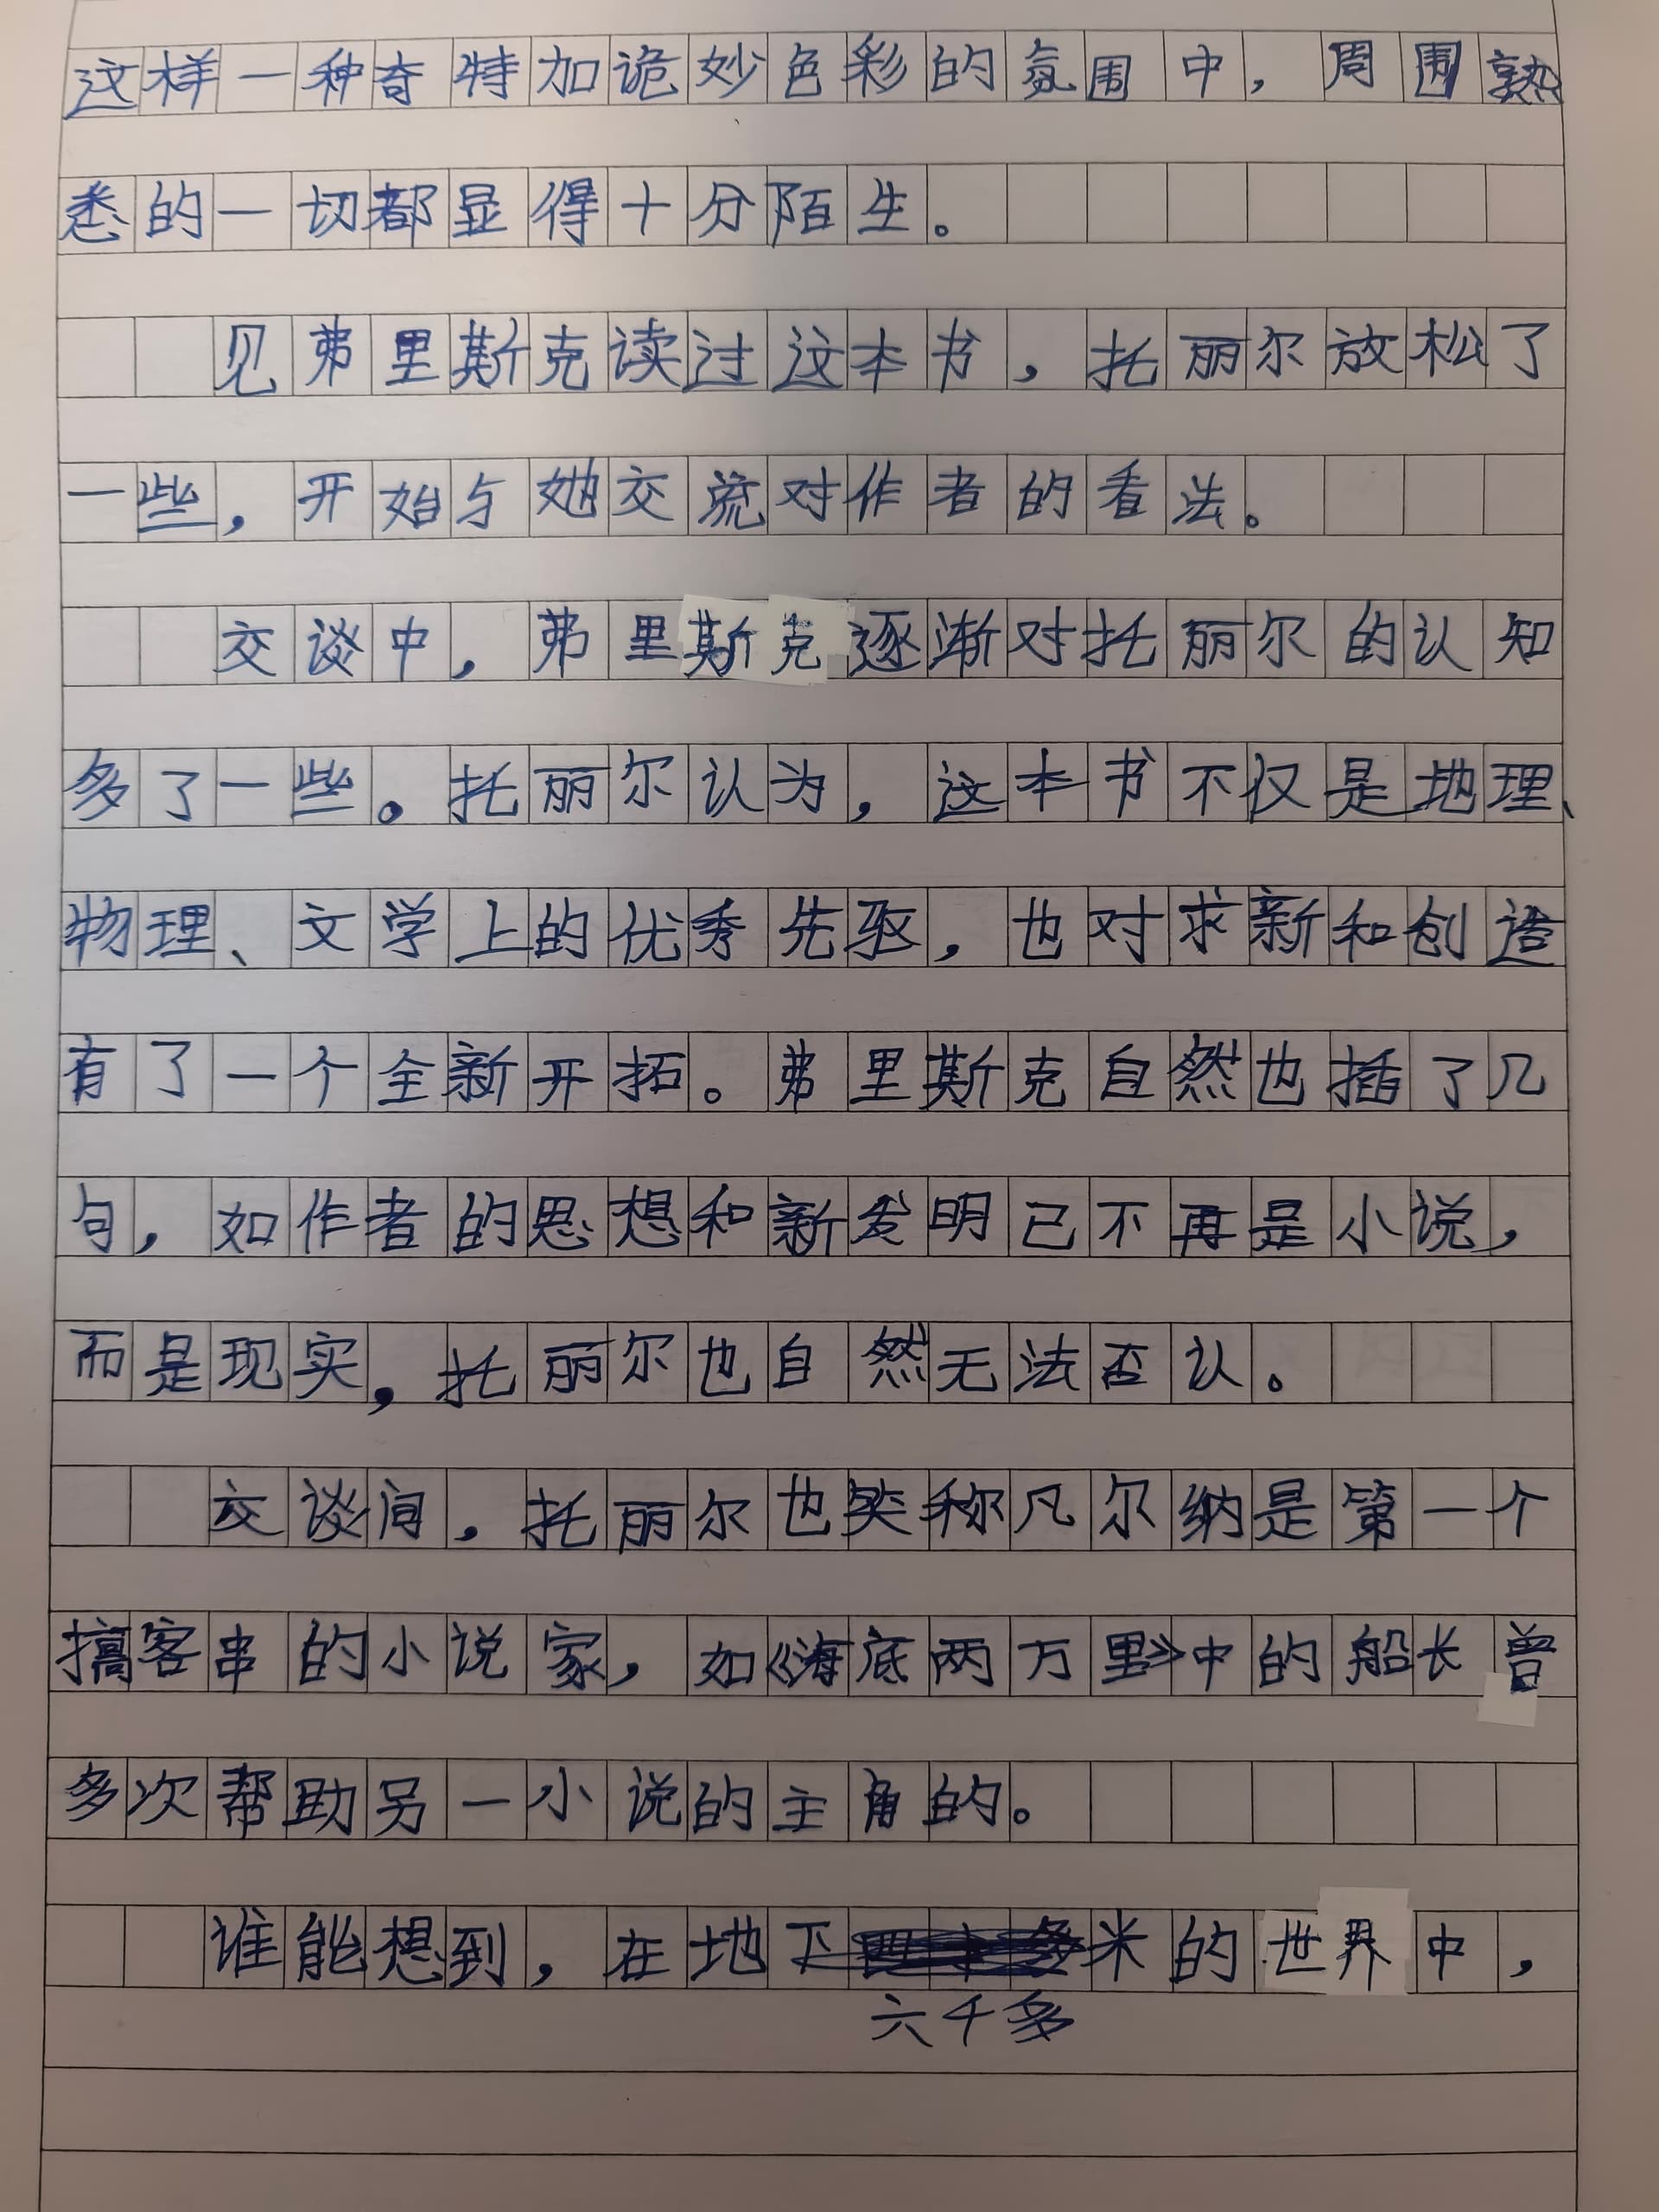 这样一种奇特加诡妙色彩的氛围中，周围熟
悉的一切都显得十分陌生。
见弗里斯克读过这本书，托丽尔放松了
一些，开始与她交流对作者的看法。
交谈中，弗里斯克逐渐对托丽尔的认知
多了一些。托丽尔认为，这本书不仅是地理、
物理、文学上的优秀先驱，也对求新和创造
有了一个全新开拓。弗里斯克自然也插了几
句，如作者的思想和新发明已不再是小说，
而是现实，托丽尔也自然无法否认。
交谈间，托丽尔也笑称凡尔纳是第一个
搞客串的小说家，如《海底两万里》中的船长曾
多次帮助另一小说的主角的。
谁能想到，在地下米的世界中，
六千多